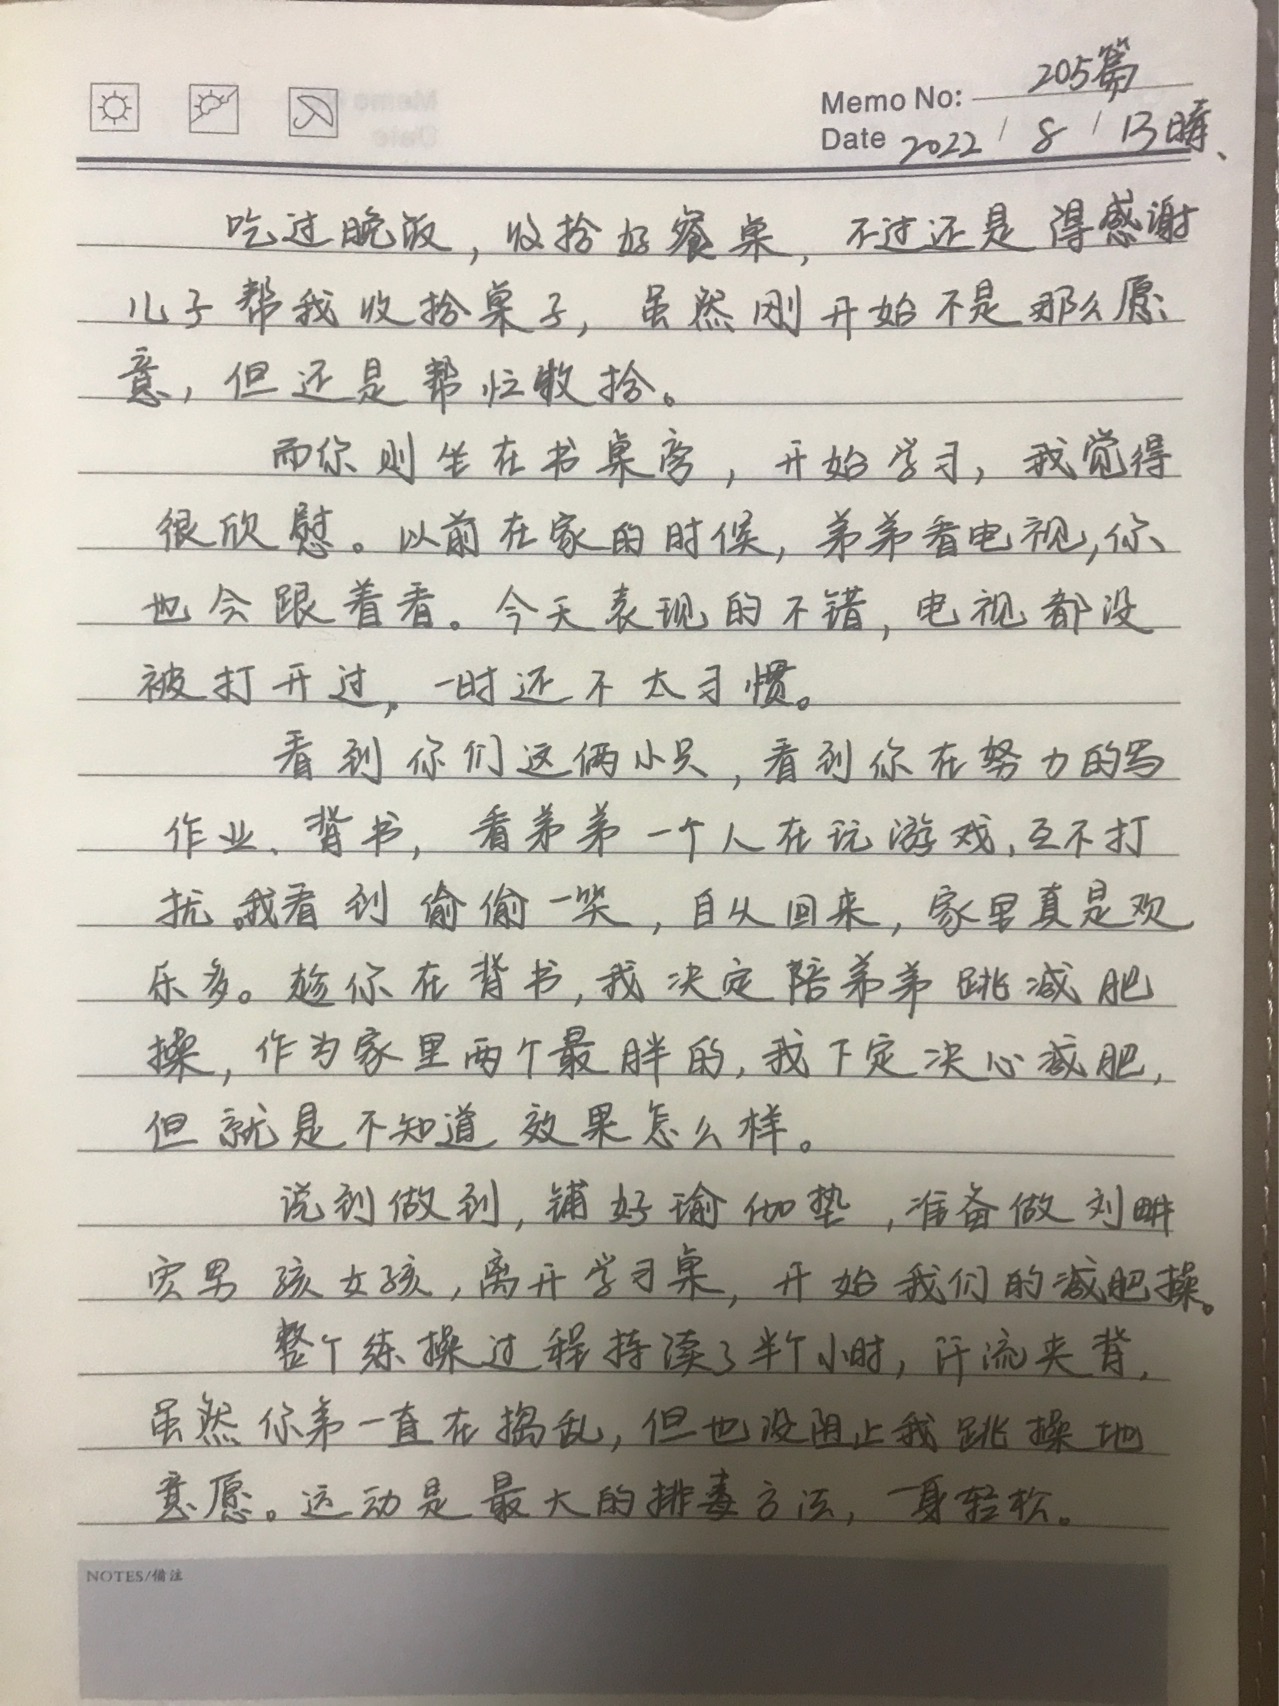 Memo No: 205篇
Date 2022 / 8 / 13 晴、
吃过晚饭，收拾好餐桌，不过还是得感谢
儿子帮我收拾桌子，虽然刚开始不是那么愿
意，但还是帮忙收拾。
而你则坐在书桌旁，开始学习，我觉得
很欣慰。以前在家的时候，弟弟看电视，你
也会跟着看。今天表现的不错，电视都没
被打开过，一时还不太习惯。
看到你们这俩小只，看到你在努力的写
作业、背书，看弟弟一个人在玩游戏，互不打
扰。我看到偷偷一笑，自从回来，家里真是欢
乐多。趁你在背书，我决定陪弟弟跳减肥
操，作为家里两个最胖的，我下定决心减肥，
但就是不知道效果怎么样。
说到做到，铺好瑜伽垫，准备做刘畊
宏男孩女孩，离开学习桌，开始我们的减肥操。
整个练操过程持续了半个小时，汗流夹背，
虽然你弟一直在捣乱，但也没阻止我跳操地
意愿。运动是最大的排毒方法，一身轻松。
NOTES/備注